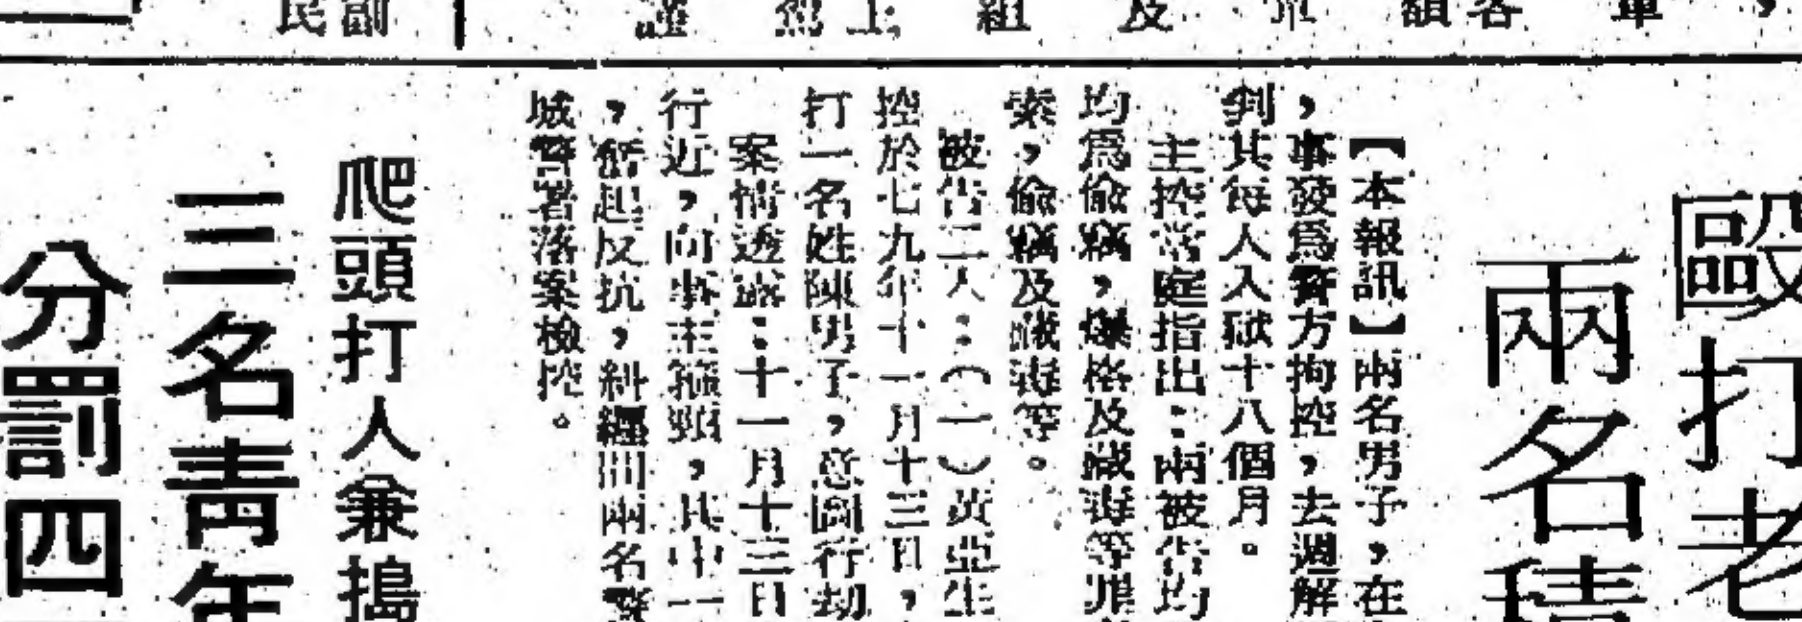 毆打老
兩名積
【本報訊】兩名男子，在
，事發爲警方拘控，去週解
判其每人入獄十八個月。
主控當庭指出：兩被告均
均爲偷竊，爆格及藏毒等罪
索，偷竊及藏毒等。
被告二人：（一）黃亞生
控於七九年十一月十三日，
打一名姓陳男子，意圖行劫
案情透露：十一月十三日
行近，向事主箍頸，其中一
，奮起反抗，糾纏間兩名警
城警署落案檢控。
爬頭打人兼搗
三名青年
分罰四